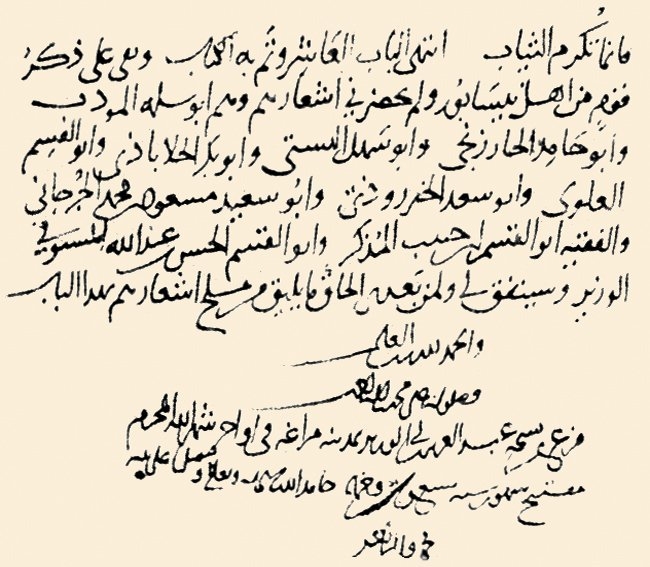 فانما تكرم الثياب انتهى الباب العاشر وتم به الكتاب وبقى على ذكر
قوم من اهل نيسابور ولم يحضرني اشعارهم وهم ابو سلمه المودب
وابو حامد الخارزنجي وابو سهل البستي وابو بكر الحلاباذي وابو القسم
العلوى وابو سعد الخدرودى وابو سعيد مسعود بن محمد الجرجاني
والفقيه ابو القسم بن حبيب المذكر وابو القسم الحسن بن عبد الله المستوفى
الوزير وسيتفق لي ولمن بعدى الحاق ما يليق من ملح اشعارهم بهذا الباب
والحمد لله رب العلمين
وصلواته على محمد واله
فرغ من نسخه عبد العزيز بمدينه مراغه فى اواخر شهر الله المحرم
مفتتح سنه سبع حامدا لله تعالى